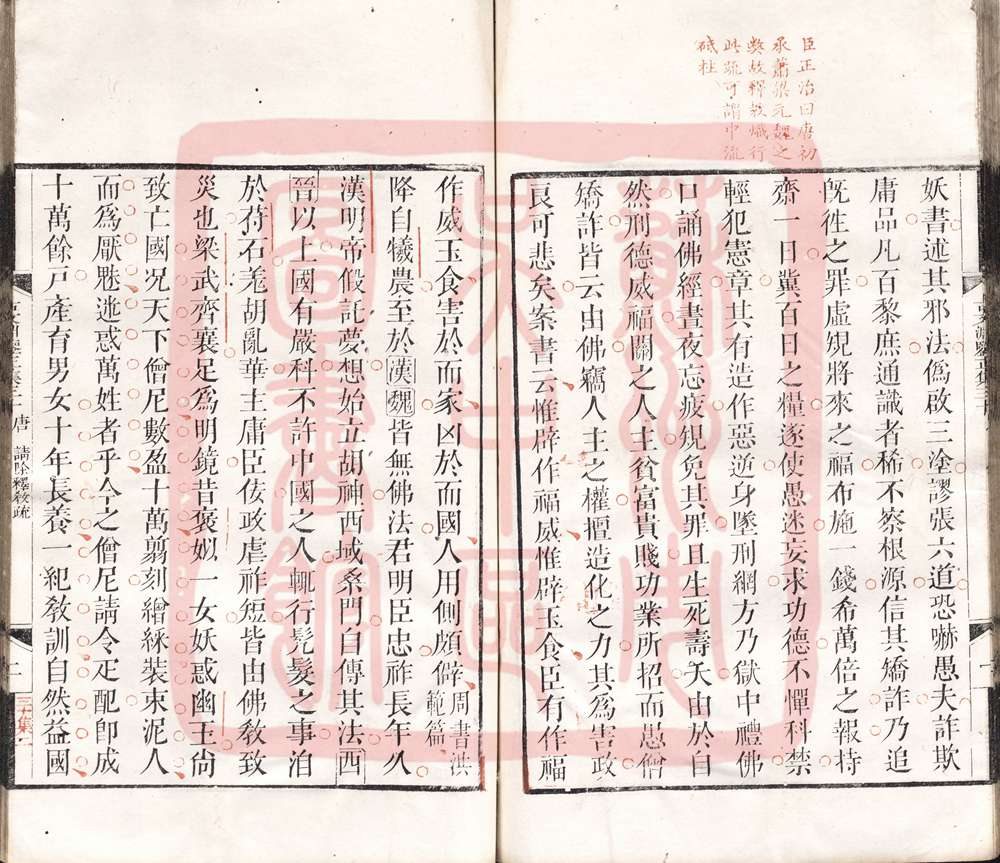 臣正治曰唐初
承蕭梁元魏之
弊故釋教熾行
此疏可謂中流
砥柱
妖書述其邪法僞啟三塗謬張六道恐嚇愚夫詐欺
庸品凡百黎庶通識者稀不察根源信其矯詐乃追
旣徃之罪虛䂓將來之福布施一錢希萬倍之報持
齋一日冀百日之糧遂使愚迷妄求功德不憚科禁
輕犯憲章其有造作惡逆身墜刑網方乃獄中禮佛
口誦佛經晝夜忘疲䂓免其罪且生死壽夭由於自
然刑德威福關之人主貧富貴賤功業所招而愚僧
矯詐皆云由佛竊人主之權擅造化之力其為害政
良可悲矣案書云惟辟作福威惟辟玉食臣有作福
作威玉食害於而家凶於而國人用側頗僻周書洪範篇
降自犧農至於漢魏皆無佛法君明臣忠祚長年久
漢明帝假託夢想始立胡神西域桑門自傳其法西
晉以上國有嚴科不許中國之人輒行髠髮之事洎
於苻石羌胡亂華主庸臣佞政虐祚短皆由佛教致
災也梁武齊襄足為明鏡昔褒姒一女妖惑幽王尙
致亡國况天下僧尼數盈十萬翦刻繒綵裝束泥人
而為厭魅迷惑萬姓者乎今之僧尼請令疋配卽成
十萬餘戸產育男女十年長養一紀敎訓自然益國
唐 請除釋教疏
二